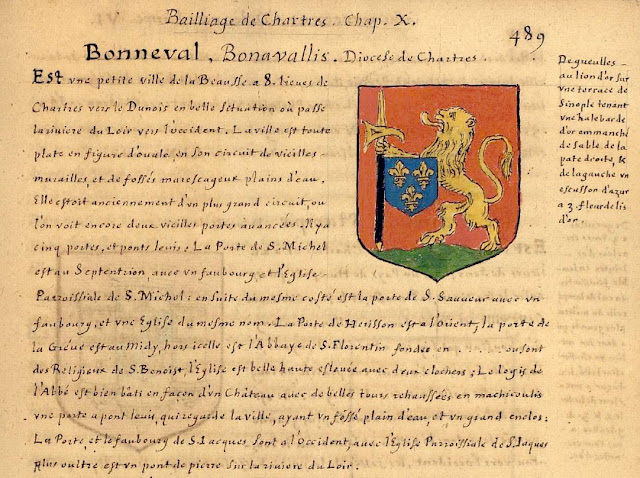 Bailliage de Chartres. Chap. X.
489
Bonneval, Bona vallis. Diocese de Chartres.
Est vne petite ville de la Beausse a 8. lieues de
Chartres vers le Dunois en belle situation où passe
la riuiere du Loir vers l'occident. La ville est toute
plate en figure d'ouale, en son circuit de vieilles
murailles, et de fossés marescageux plains d'eau.
Elle estoit anciennement d'vn plus grand circuit, ou
l'on voit encore deux vieilles portes auancées. Il y a
cinq portes, et ponts leuis: La Porte de S. Michel
est au Septentrion, auec vn faubourg et l'Eglise
Parroissiale de S. Michel: en suite du mesme costé est la porte de S. Sauueur auec vn
faubourg, et vne Eglise du mesme nom. La Porte de Herisson est a l'Orient, la porte de
la Gréue est au Midy, hors icelle est l'Abbaye de S. Florentin fondée en . . . . ou sont
des Religieux de S. Benoist, l'Eglise est belle haute esleuée auec deux clochers; Le logis de
l'Abbé est bien bâti en façon d'vn Château auec de belles tours rehaussées en machicoulis
vne porte a pont leuis, qui regarde la ville, ayant vn fossé plain d'eau, et vn grand enclos:
La Porte et le faubourg de S. Iacques sont a l'Occident, auec l'Eglise Parroissiale de S. Iaques
plus oultre est vn pont de pierre sur la riuiere du Loir.
De gueulles
au lion d'or sur
vne terrace de
Sinople tenant
vne halebarde
d'or emmanché
de sable de la
pate droite, &
de la gauche vn
escusson d'azur
a 3. fleurdelis
d'or.